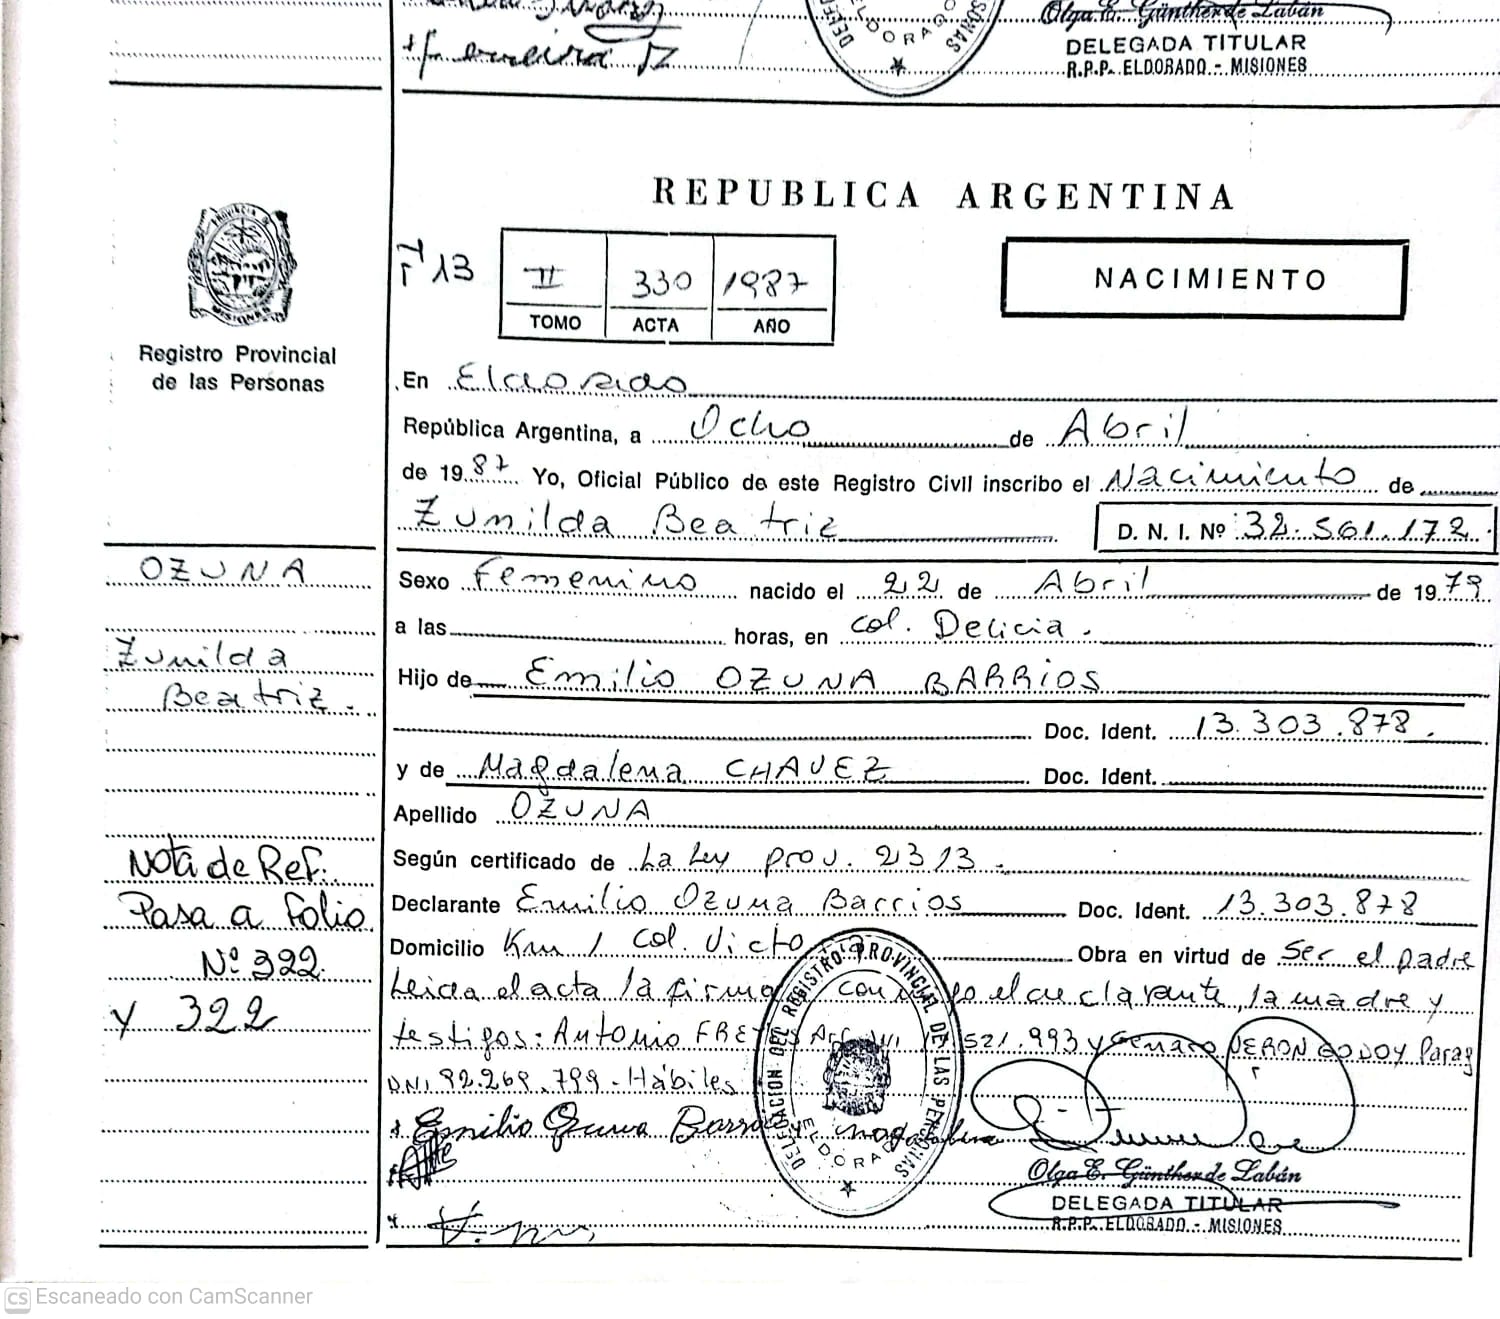 Ferreira
Olga E. Günther de Labán
DELEGADA TITULAR
R.P.P. ELDORADO - MISIONES
REPUBLICA ARGENTINA
Fº 13
II 330 1987
TOMO ACTA AÑO
NACIMIENTO
PROVINCIA DE MISIONES
Registro Provincial
de las Personas
En Eldorado
República Argentina, a Ocho de Abril
de 1987 Yo, Oficial Público de este Registro Civil inscribo el Nacimiento de
Zunilda Beatriz D. N. I. Nº 32.561.172.
OZUNA
Zunilda
Beatriz.
Sexo Femenino nacido el 22 de Abril de 1979
a las horas, en col. Delicia.
Hijo de Emilio OZUNA BARRIOS
Doc. Ident. 13.303.878.
y de Magdalena CHAVEZ Doc. Ident.
Apellido OZUNA
Según certificado de La Ley prov. 2313.
Declarante Emilio Ozuna Barrios Doc. Ident. 13.303.878
Domicilio Km 1 col. Victo Obra en virtud de Ser el padre
Leida el acta la firma con el declarante, la madre y
testigos: Antonio FRE 521.993 y Genaro VERON GODOY Parag
DNI 92.269.799 - Hábiles
Nota de Ref:
Pasa a folio
Nº 322
y 322
Emilio Ozuna Barrios y magdalena
DELEGACION DEL REGISTRO PROVINCIAL DE LAS PERSONAS
ELDORADO
Olga E. Günther de Labán
DELEGADA TITULAR
R.P.P. ELDORADO - MISIONES
CS Escaneado con CamScanner